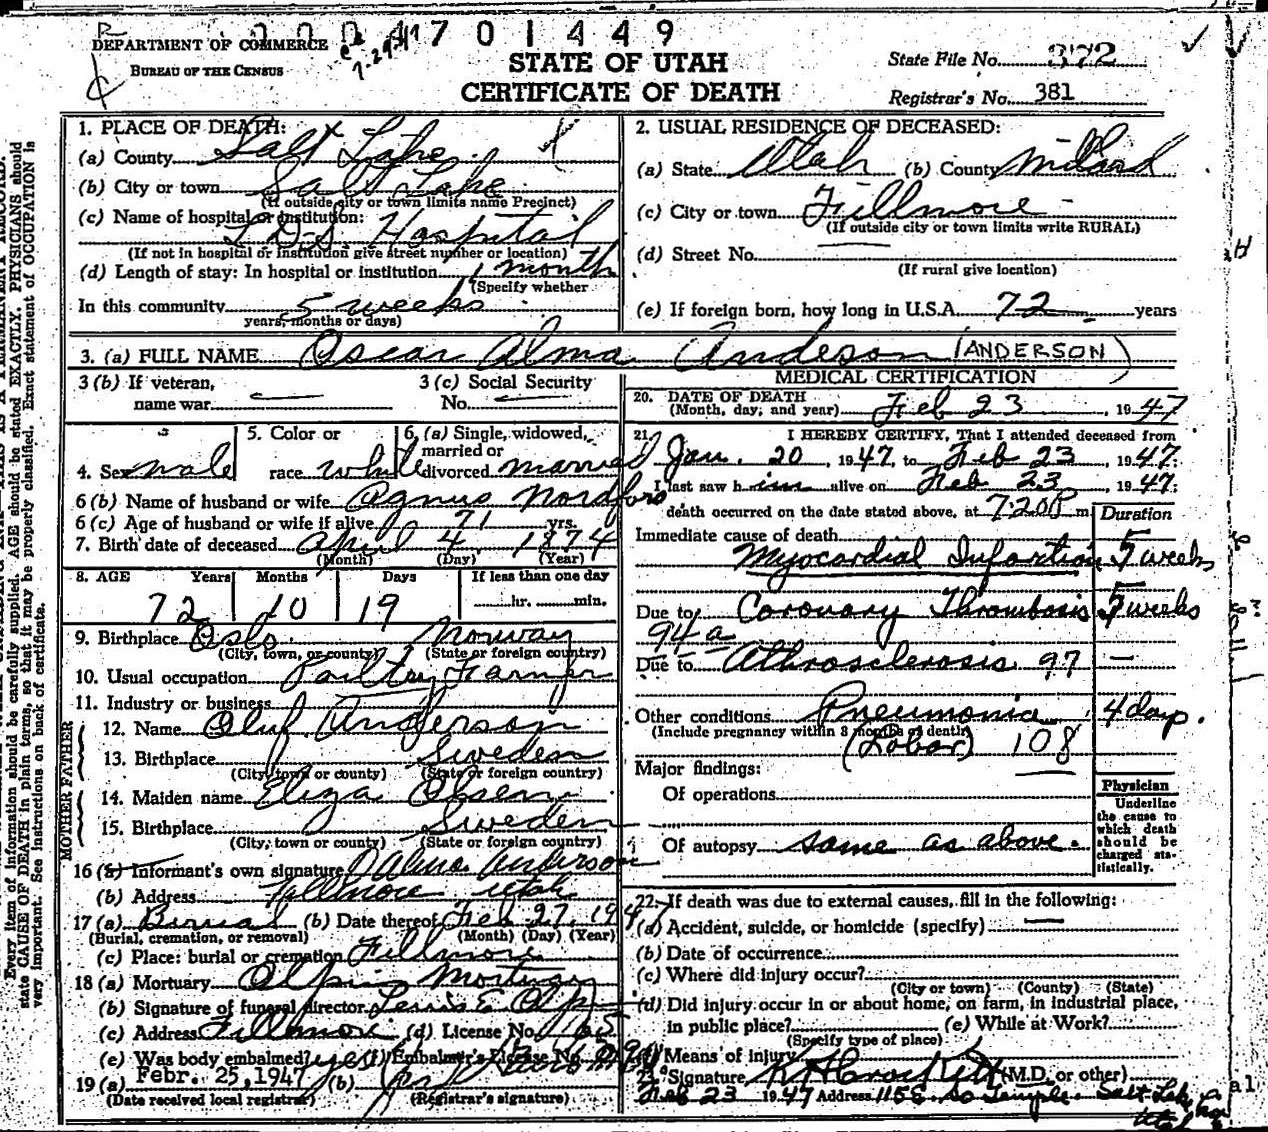 4701449
DEPARTMENT OF COMMERCE
BUREAU OF THE CENSUS
STATE OF UTAH
CERTIFICATE OF DEATH
State File No. 372
Registrar's No. 381
1. PLACE OF DEATH:
(a) County Salt Lake
(b) City or town Salt Lake
(If outside city or town limits name Precinct)
(c) Name of hospital or institution:
L.D.S. Hospital
(If not in hospital or institution give street number or location)
(d) Length of stay: In hospital or institution 1 month
(Specify whether
In this community 5 weeks
years, months or days)
2. USUAL RESIDENCE OF DECEASED:
(a) State Utah (b) County Millard
(c) City or town Fillmore
(If outside city or town limits write RURAL)
(d) Street No.
(If rural give location)
(e) If foreign born, how long in U.S.A. 72 years
3. (a) FULL NAME Oscar Alma Anderson (ANDERSON)
3 (b) If veteran,
name war
3 (c) Social Security
No.
4. Sex male
5. Color or
race white
6. (a) Single, widowed,
married or
divorced married
6 (b) Name of husband or wife Agnus Nordfors
6 (c) Age of husband or wife if alive 71 yrs.
7. Birth date of deceased April 4, 1874
(Month) (Day) (Year)
8. AGE Years Months Days If less than one day
72 10 19 hr. min.
9. Birthplace Oslo Norway
(City, town, or county) (State or foreign country)
10. Usual occupation Poultry Farmer
11. Industry or business
FATHER
12. Name Oluf Anderson
13. Birthplace Sweden
(City, town or county) (State or foreign country)
MOTHER
14. Maiden name Eliza Olsen
15. Birthplace Sweden
(City, town or county) (State or foreign country)
16 (a) Informant's own signature Alma Anderson
(b) Address Fillmore Utah
17 (a) Burial (b) Date thereof Feb 27, 1947
(Burial, cremation, or removal) (Month) (Day) (Year)
(c) Place: burial or cremation Fillmore
18 (a) Mortuary Olpin Mortuary
(b) Signature of funeral director Lewis E Olpin
(c) Address Fillmore (d) License No. 165
(e) Was body embalmed? yes (f) Embalmer's License No.
19 (a) Febr. 25, 1947 (b)
(Date received local registrar) (Registrar's signature)
MEDICAL CERTIFICATION
20. DATE OF DEATH
(Month, day, and year) Feb 23, 1947
21. I HEREBY CERTIFY, That I attended deceased from
Jan. 20, 1947, to Feb 23, 1947;
I last saw him alive on Feb 23, 1947;
death occurred on the date stated above, at 7:20P m.
Duration
Immediate cause of death
Myocardial Infartion 5 weeks
Due to Coronary Thrombosis 5 weeks
94a
Due to Athrosclerosis 97 —
Other conditions Pneumonia 4 days.
(Include pregnancy within 3 months of death)
(Lobar) 108
Major findings:
Of operations
Of autopsy same as above.
Physician
Underline
the cause to
which death
should be
charged sta-
tistically.
22. If death was due to external causes, fill in the following:
(a) Accident, suicide, or homicide (specify) —
(b) Date of occurrence
(c) Where did injury occur?
(City or town) (County) (State)
(d) Did injury occur in or about home, on farm, in industrial place,
in public place? (e) While at Work?
(Specify type of place)
(f) Means of injury
Signature R H Crockett (M.D. or other)
Feb 23 1947 Address 115 E. So Temple Salt Lake
Utah
Every item of information should be carefully supplied. AGE should be stated EXACTLY. PHYSICIANS should
state CAUSE OF DEATH in plain terms, so that it may be properly classified. Exact statement of OCCUPATION is
very important. See instructions on back of certificate.